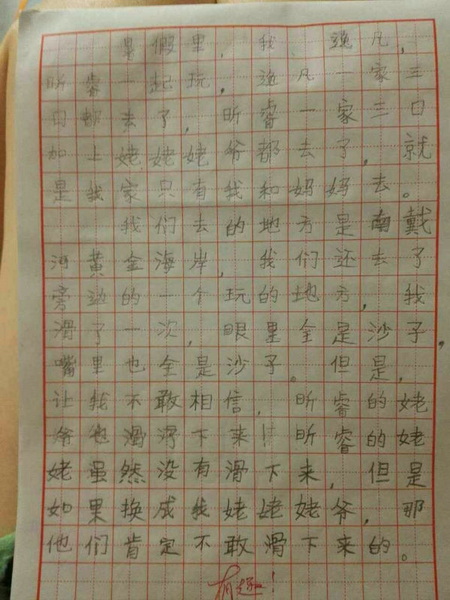 暑假里，我、逸凡、
昕睿一起玩。逸凡一家三
口都去了，昕睿一家三口
加上姥姥姥爷都去了，就
是我家只有我和妈妈去。
我们去的地方是南戴
河黄金海岸，我们还去了
旁边的一个玩的地方，我
滑了一次，眼里全是沙子，
嘴里也全是沙子。但是，
让我不敢相信，昕睿的姥
爷也滑滑下来！昕睿的姥
姥虽然没有滑下来，但是
如果换成我姥姥姥爷，那
他们肯定不敢滑下来的。
有趣！